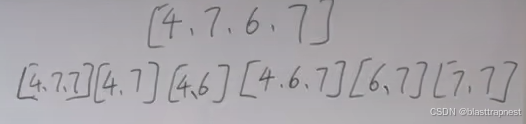 [4、7、6、7]
[4、7、7][4、7][4、6][4、6、7][6、7][7、7]
CSDN @blasttrapnest